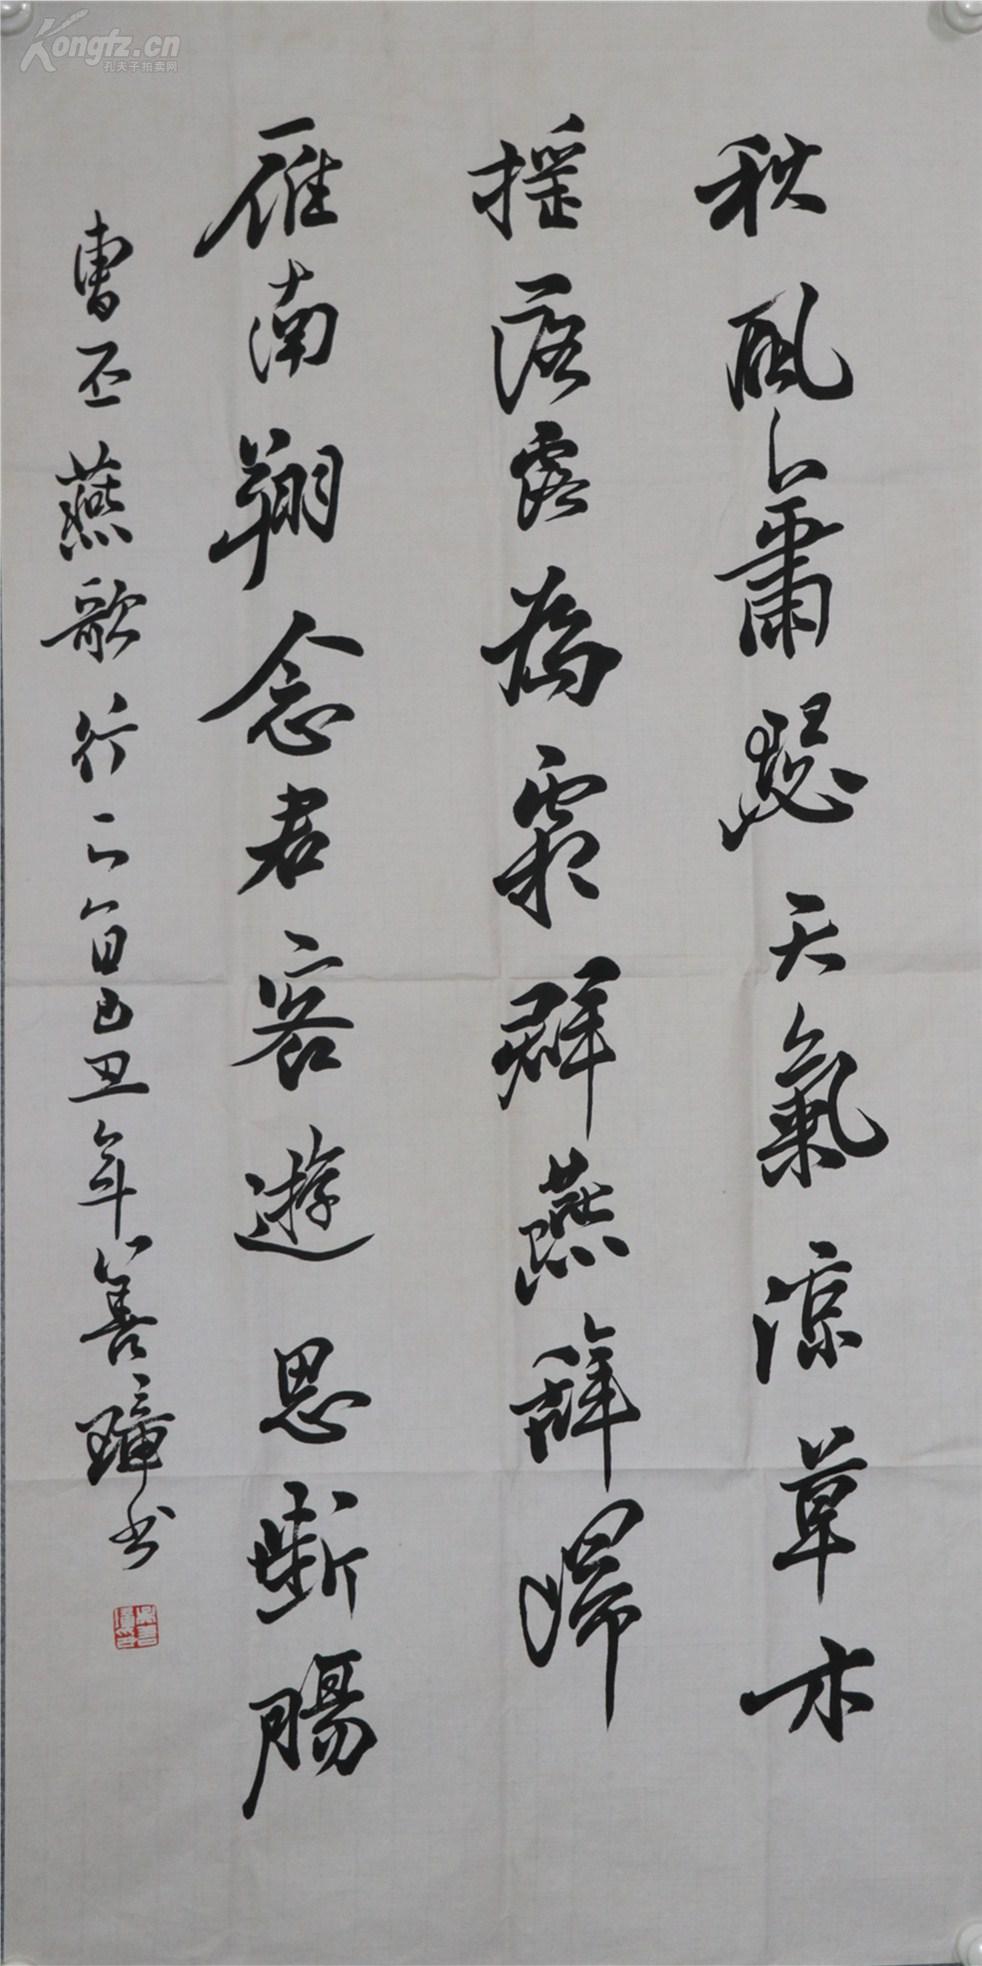 秋風蕭瑟天氣涼草木
摇落露為霜群燕辭歸
雁南翔念君客遊思斷腸
曹丕燕歌行一首己丑年善璋书
Kongfz.cn
孔夫子拍卖网